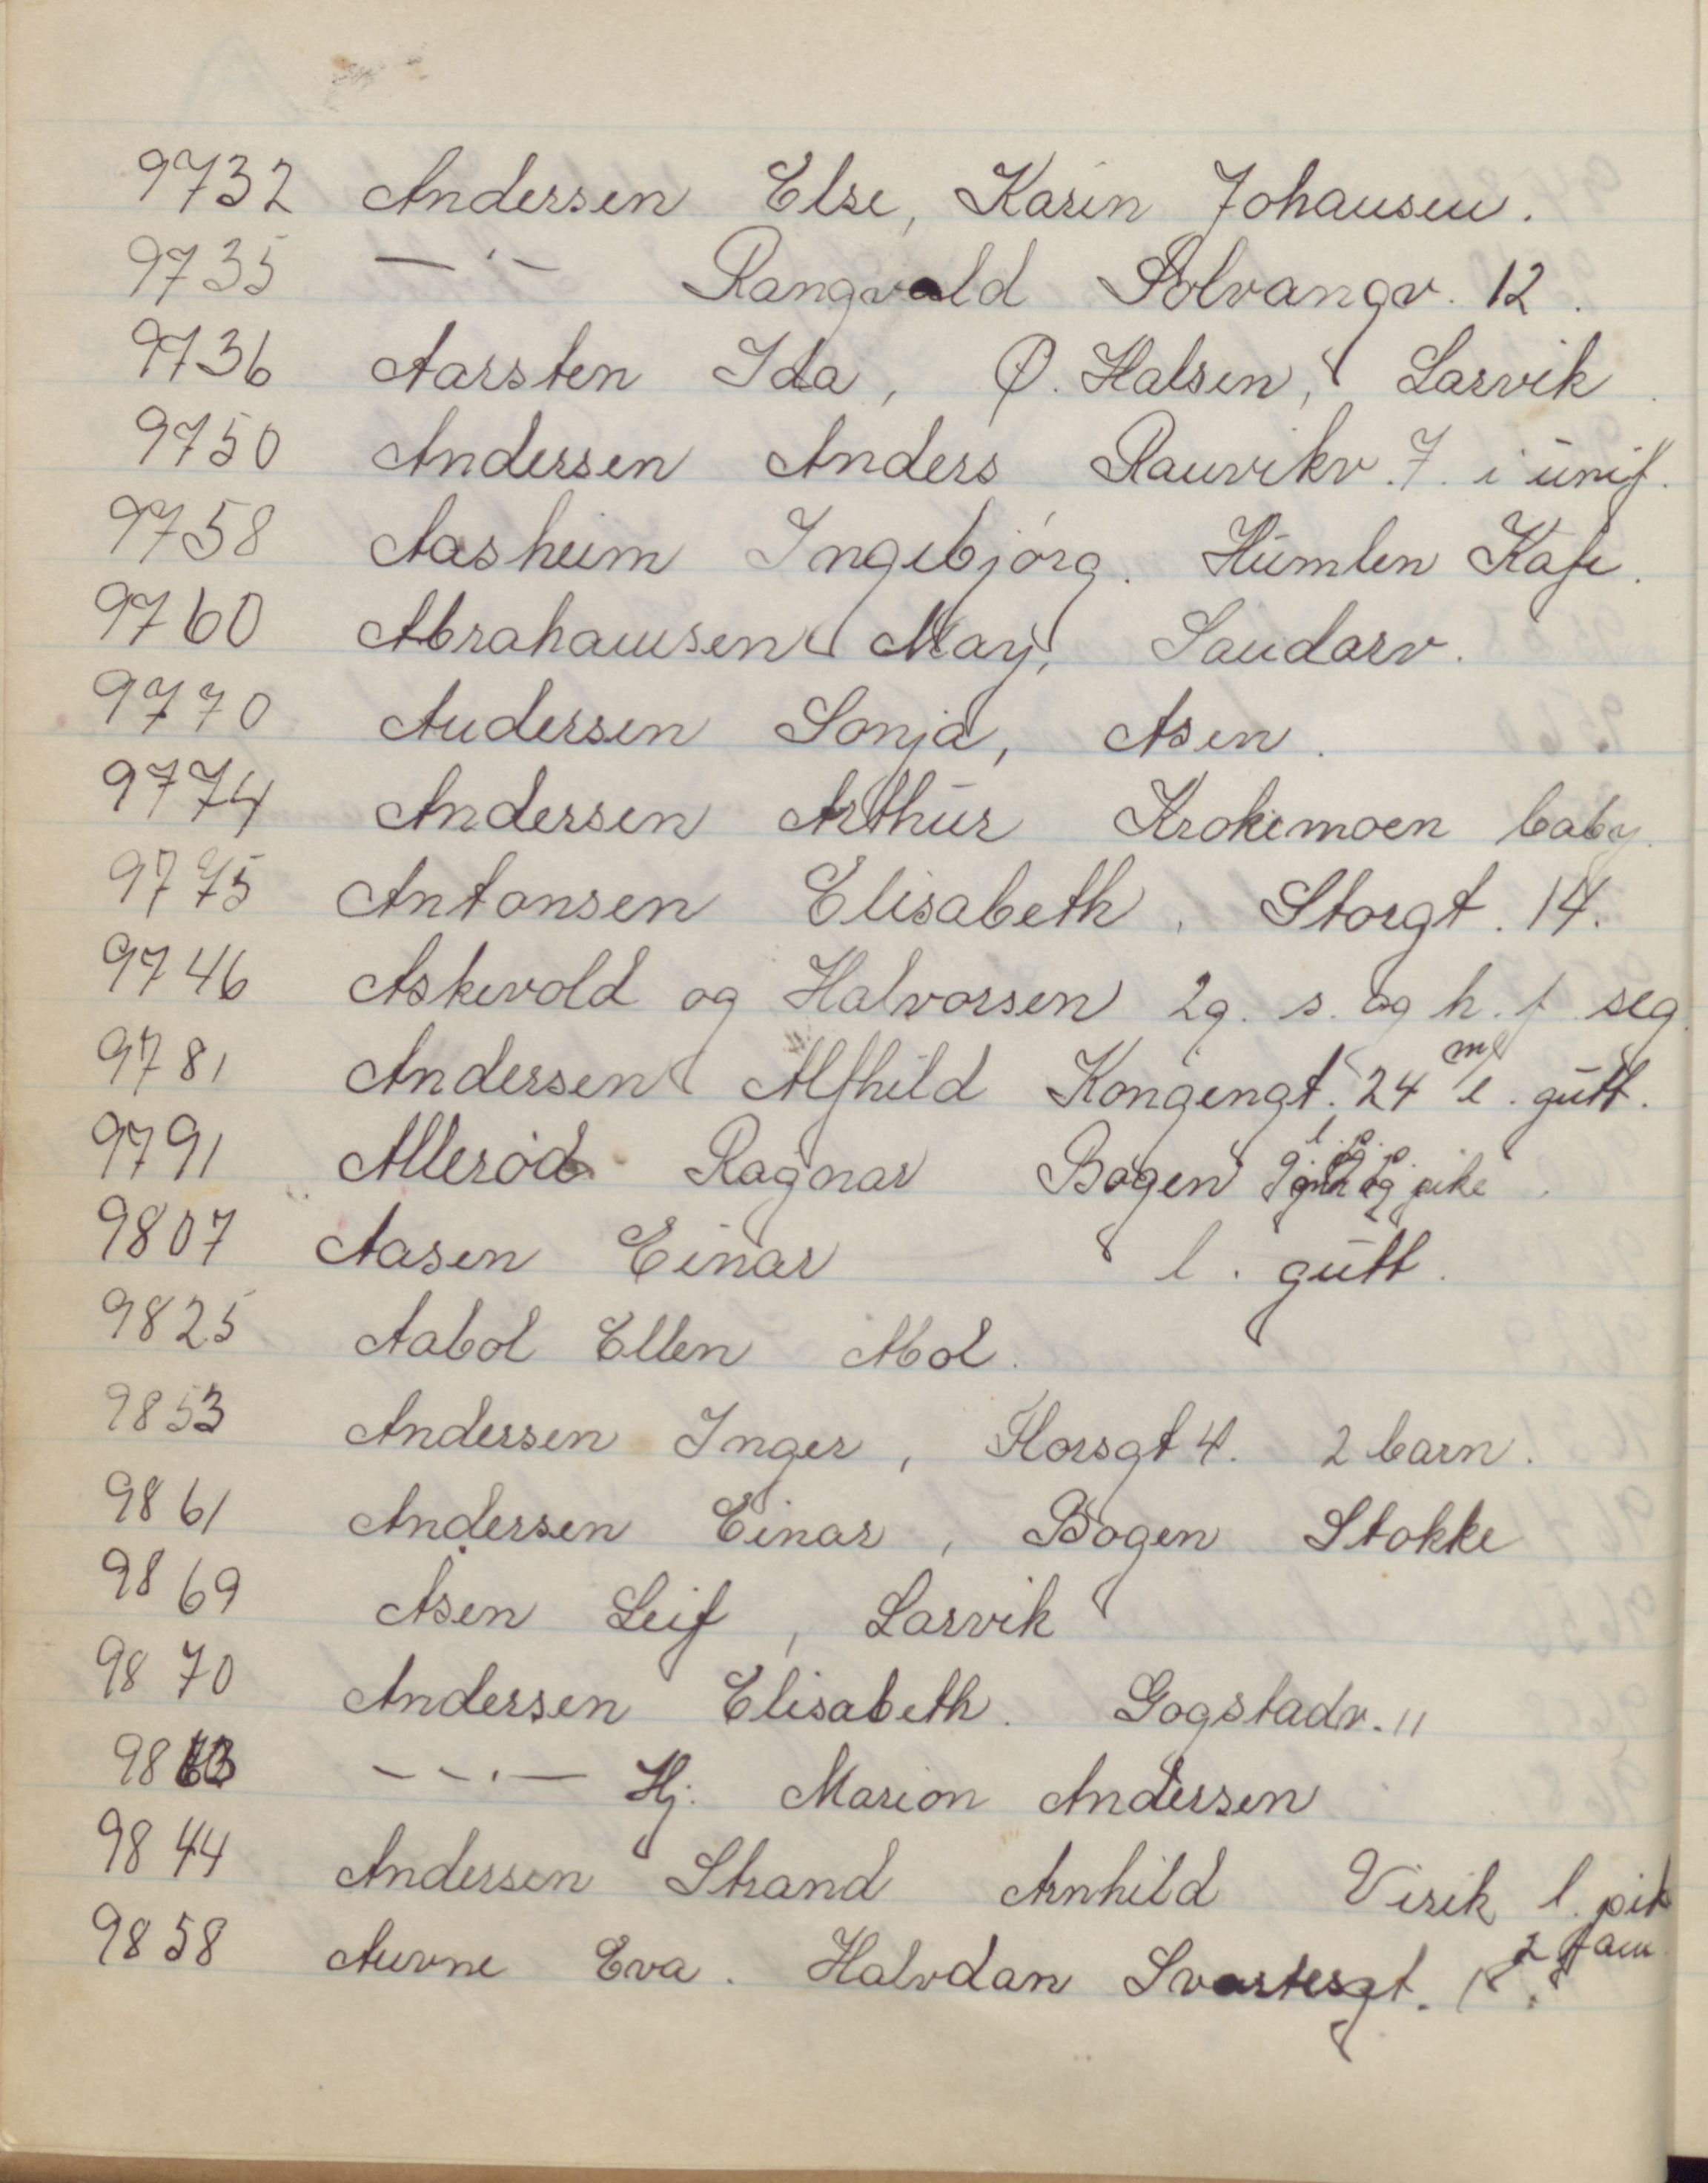 9732 Andersen Else, Karin Johansen.
9735 — " — Rangvald Solvangv. 12.
9736 Aarsten Ida, Ø. Halsen, Larvik.
9750 Andersen Anders Rauvikv. 7. i unif.
9758 Aasheim Ingebjørg. Humlen Kafe.
9760 Abrahamsen May, Sandarv.
9770 Andersen Sonja, Åsen.
9774 Andersen Arthur Krokemoen baby.
9775 Antonsen Elisabeth, Storgt. 14.
9746 Askevold og Halvorsen 2g. s. og h. f. seg.
9781 Andersen Alfhild Kongengt. 24 m/ l. gutt.
9791 Allerød Ragnar Bogen pike.
9807 Aasen Einar l. gutt.
9825 Aabol Ellen Abol.
9853 Andersen Inger, Horsgt 4. 2 barn.
9861 Andersen Einar, Bogen Stokke
9869 Åsen Leif, Larvik
9870 Andersen Elisabeth. Gogstadv. 11
9863 — " — Hj. Marion Andersen
9844 Andersen Strand Arnhild Virik l. pik
9858 Auvne Eva. Halvdan Svartesgt. 18. 2 fam.